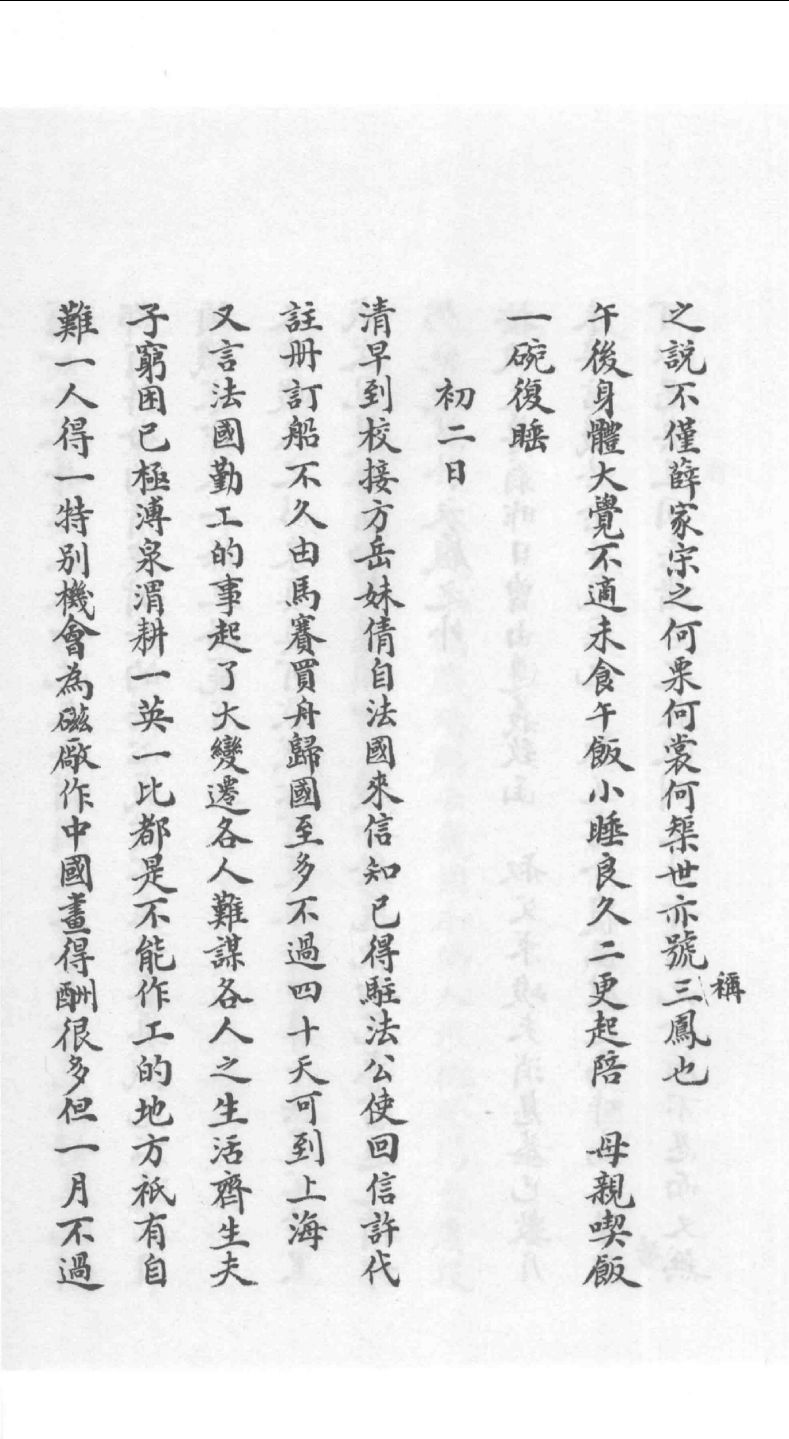 之說不僅薛家宗之何栗何裳何榘世亦號稱三鳳也
午後身體大覺不適未食午飯小睡良久二更起陪　母親喫飯
一碗復睡
初二日
清早到校接方岳妹倩自法國來信知已得駐法公使回信許代
註册訂船不久由馬賽買舟歸國至多不過四十天可到上海
又言法國勤工的事起了大變遷各人難謀各人之生活齊生夫
子窮困已極溥泉渭耕一英一比都是不能作工的地方祇有自
難一人得一特别機會為磁廠作中國畫得酬很多但一月不過